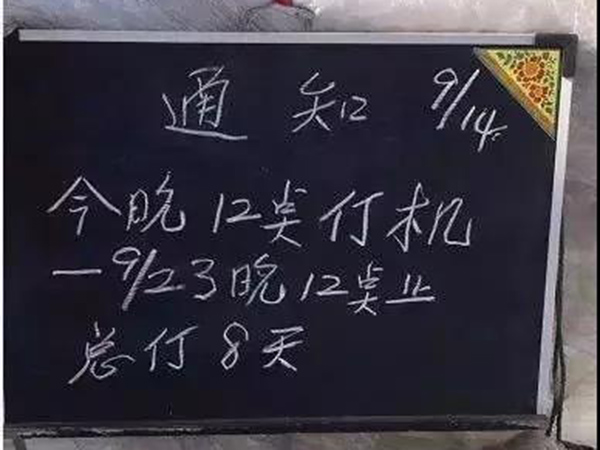 通知 9/14.
今晚12奌仃机
—9/23晚12奌止
总仃8天